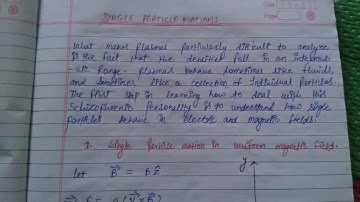 SINGLE PARTICLE MOTIONS
What makes plasmas particularly difficult to analyze
is the fact that the densities fall in an intermedi
-ate range. Plasmas behave sometimes like fluids,
and sometimes like a collection of individual particles.
The first step in learning how to deal with this
schizophrenic personality is to understand how single
particles behave in electric and magnetic fields.
1. Single Particle motion in uniform magnetic field.
let B⃗ = B ẑ
y
⇒ = q(v⃗×B⃗)